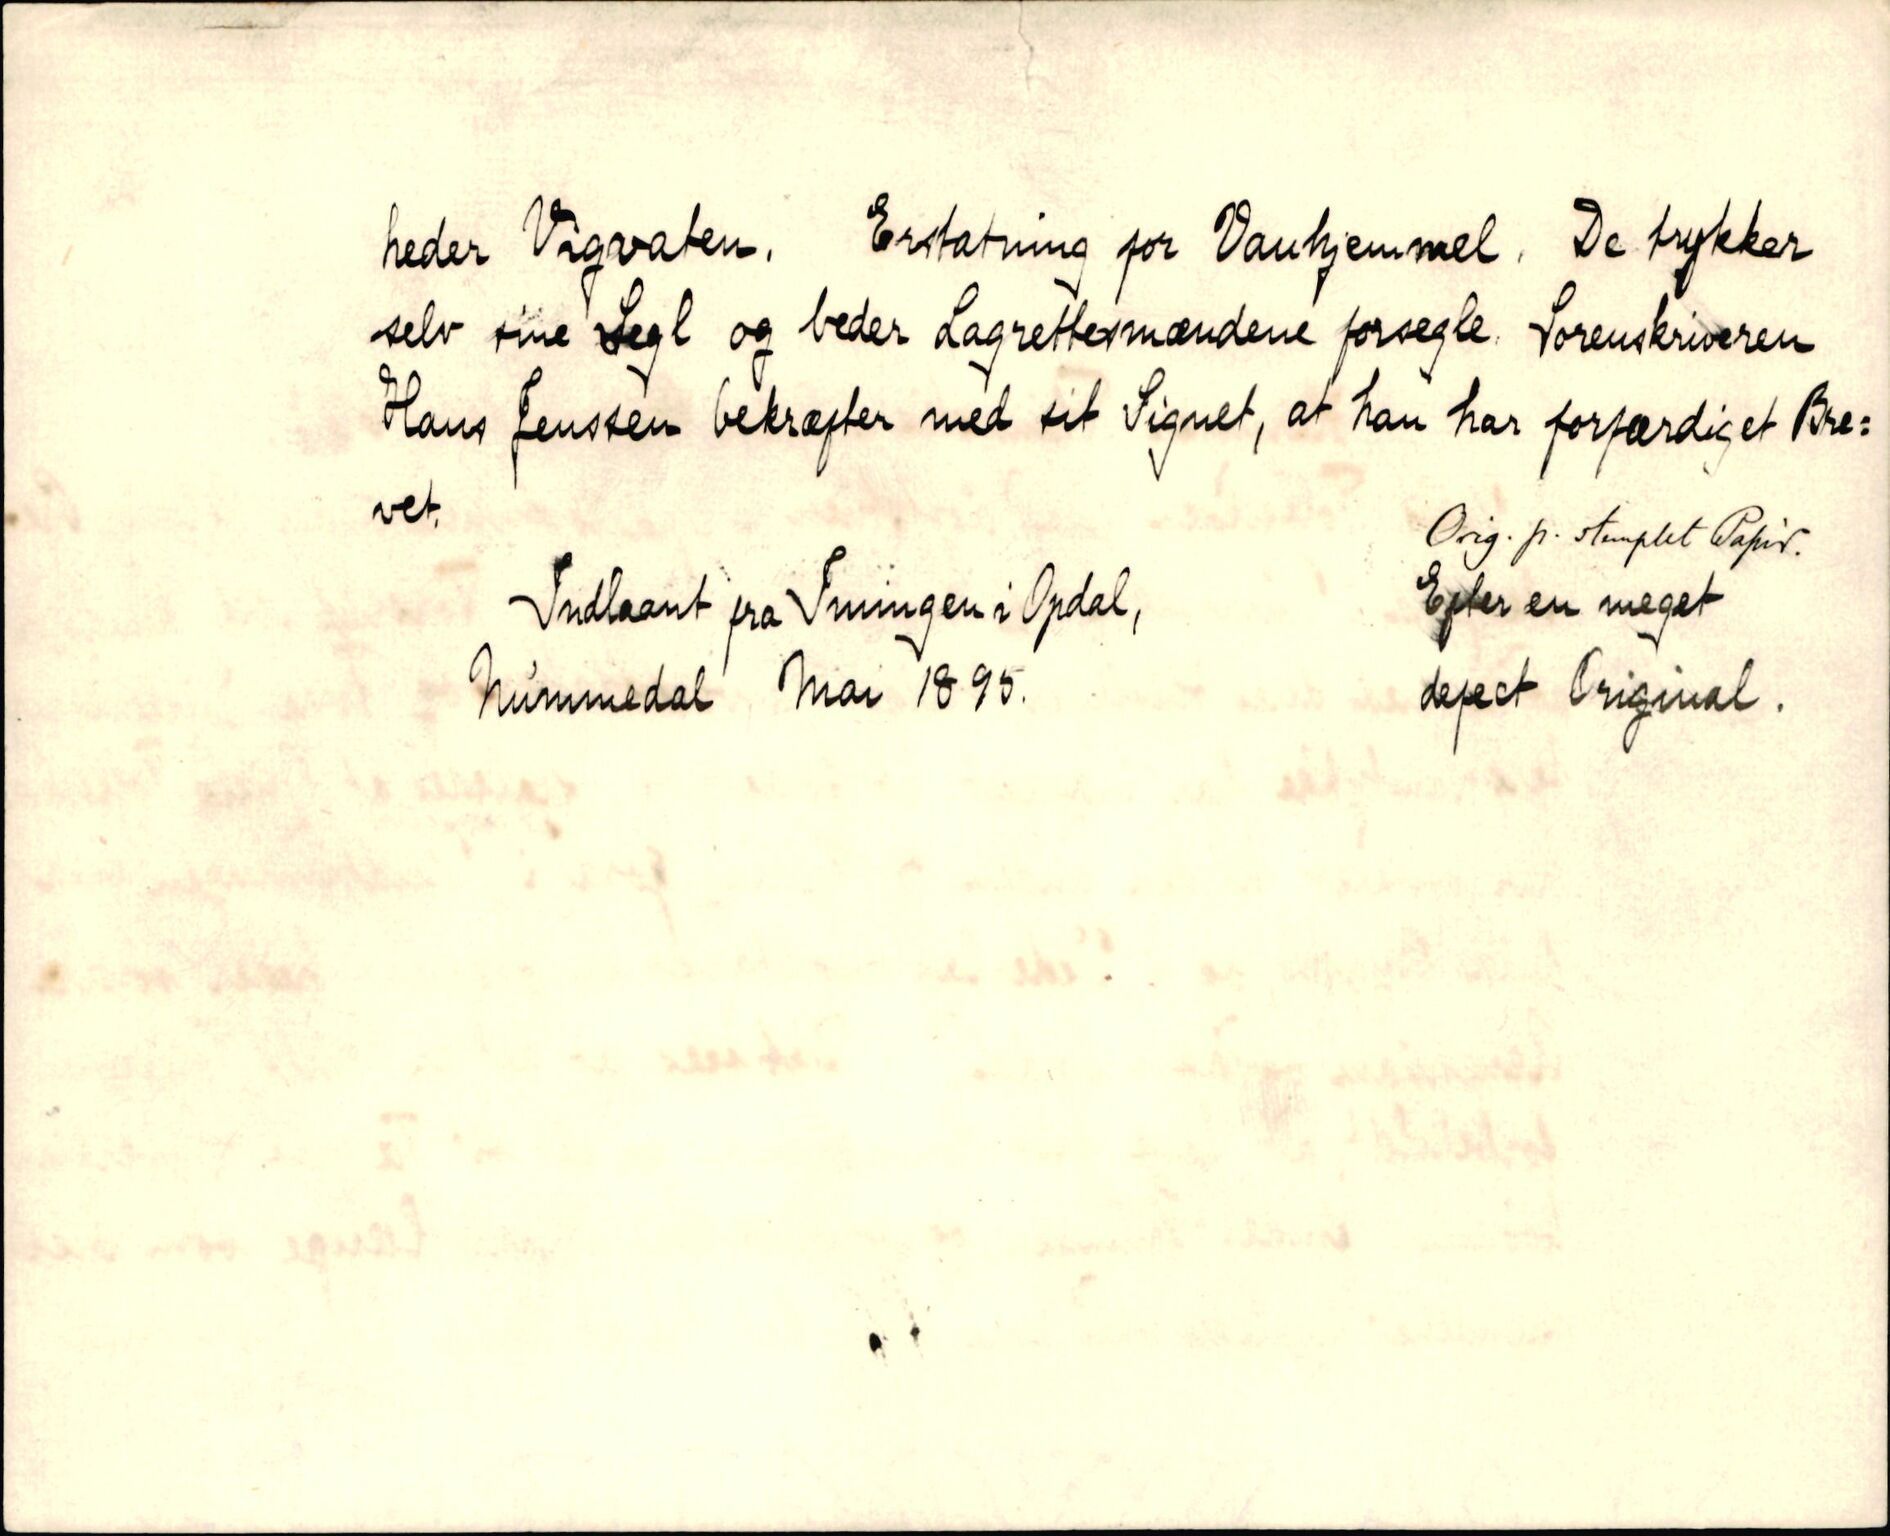 heder Vigvaten. Erstatning for Vanhjemmel. De trykker
selv sine Segl og beder Lagrettesmændene forsegle. Sorenskriveren
Hans Jenssen bekræfter med sit Signet, at han har forfærdiget Bre=
vet.
Orig. p. stemplet Papir.
Indlaant fra Imingen i Opdal,
Efter en meget
Nummedal Mai 1895.
defect Original.